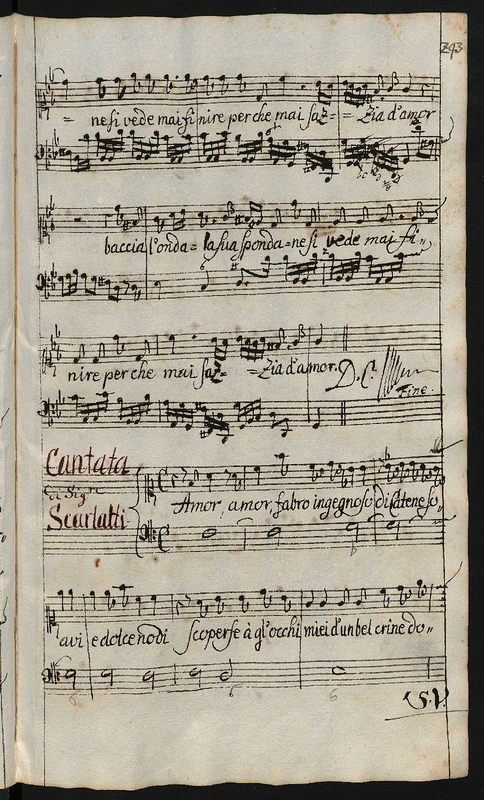 293
= ne si vede mai finire perche mai saz = = zia d'amor
baccia l'onda = la sua sponda = ne si vede mai fi„
nire perche mai saz = = zia d'amor. D. C.
Fine.
Cantata
di Sigre
Scarlatti
Amor, amor, fabro ingegnoso di Catene so„
avi e dolce nodi scoperse à gl'occhi miei d'un bel crine do„
V.S.